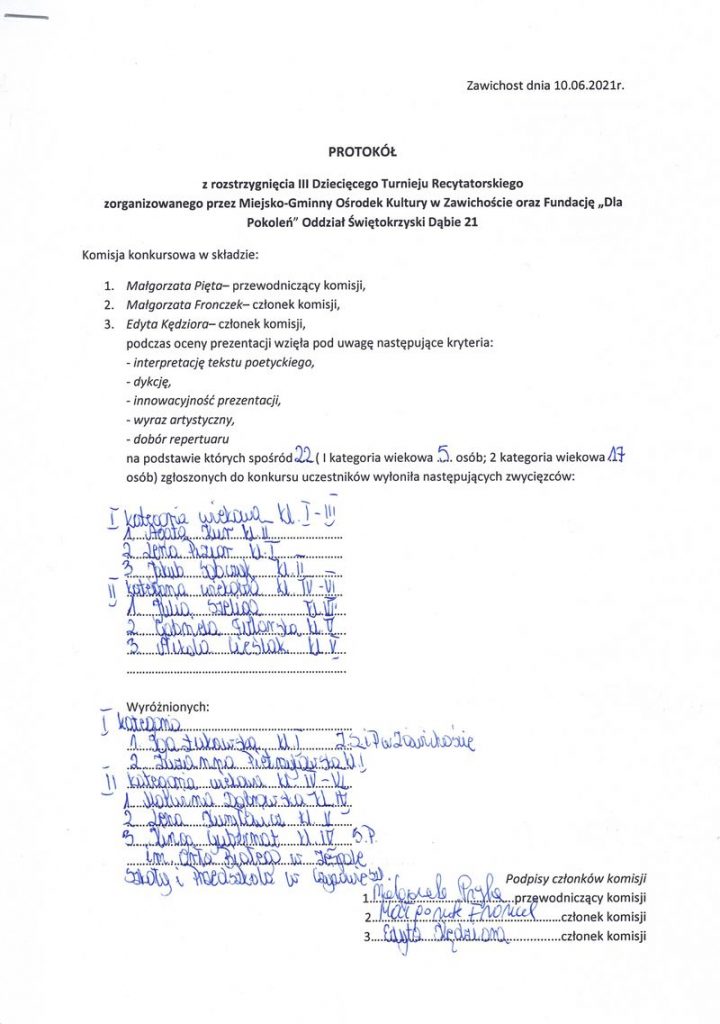 Zawichost dnia 10.06.2021r.
PROTOKÓŁ
z rozstrzygnięcia III Dziecięcego Turnieju Recytatorskiego
zorganizowanego przez Miejsko-Gminny Ośrodek Kultury w Zawichoście oraz Fundację „Dla
Pokoleń” Oddział Świętokrzyski Dąbie 21
Komisja konkursowa w składzie:
1. Małgorzata Pięta– przewodniczący komisji,
2. Małgorzata Fronczek– członek komisji,
3. Edyta Kędziora– członek komisji,
podczas oceny prezentacji wzięła pod uwagę następujące kryteria:
- interpretację tekstu poetyckiego,
- dykcję,
- innowacyjność prezentacji,
- wyraz artystyczny,
- dobór repertuaru
na podstawie których spośród 22 ( I kategoria wiekowa 5. osób; 2 kategoria wiekowa 17
osób) zgłoszonych do konkursu uczestników wyłoniła następujących zwycięzców:
I kategoria wiekowa kl. I - III
1. Agata kl. II
2. Lena kl. I
3. Jakub Sobczyk kl. II
II kategoria wiekowa kl. IV - VI
1. Julia Szeliga kl. VI
2. Gabriela kl. V
3. Nikola Cieślak kl. V
Wyróżnionych:
I kategoria
1. Iga Żukowska kl. I Z.S.i P. w Zawichoście
2. Zuzanna kl. I
II kategoria wiekowa kl. IV - VI
1. Dąbrowska kl. IV
2. Lena kl. V
3. Kinga Gubernat kl. IV S.P.
im. Orła Białego w Zespole
Szkoły i Przedszkola w
Podpisy członków komisji
1. przewodniczący komisji
2. członek komisji
3. Edyta Kędziora członek komisji